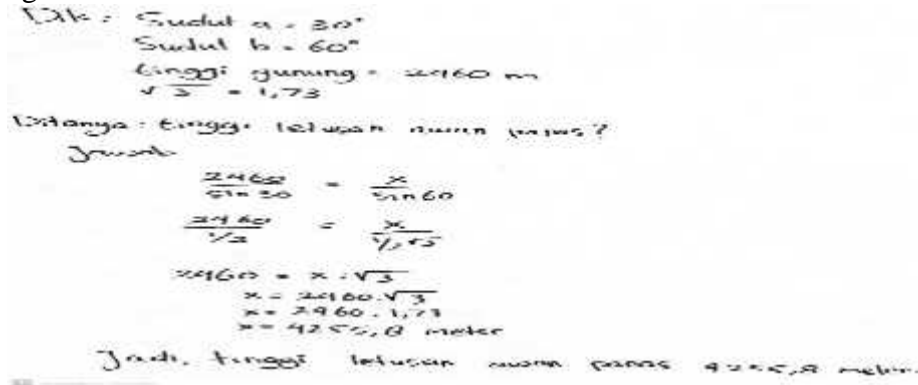 Dik : Sudut a = 30°
Sudut b = 60°
tinggi gunung = 2460 m
√3 = 1,73
Ditanya : tinggi letusan awan panas?
Jawab
2460/sin 30 = x/sin 60
2460/½ = x/½√3
2460 = x . √3
x = 2460.√3
x = 2460 . 1,73
x = 4255,8 meter
Jadi, tinggi letusan awan panas 4255,8 meter.